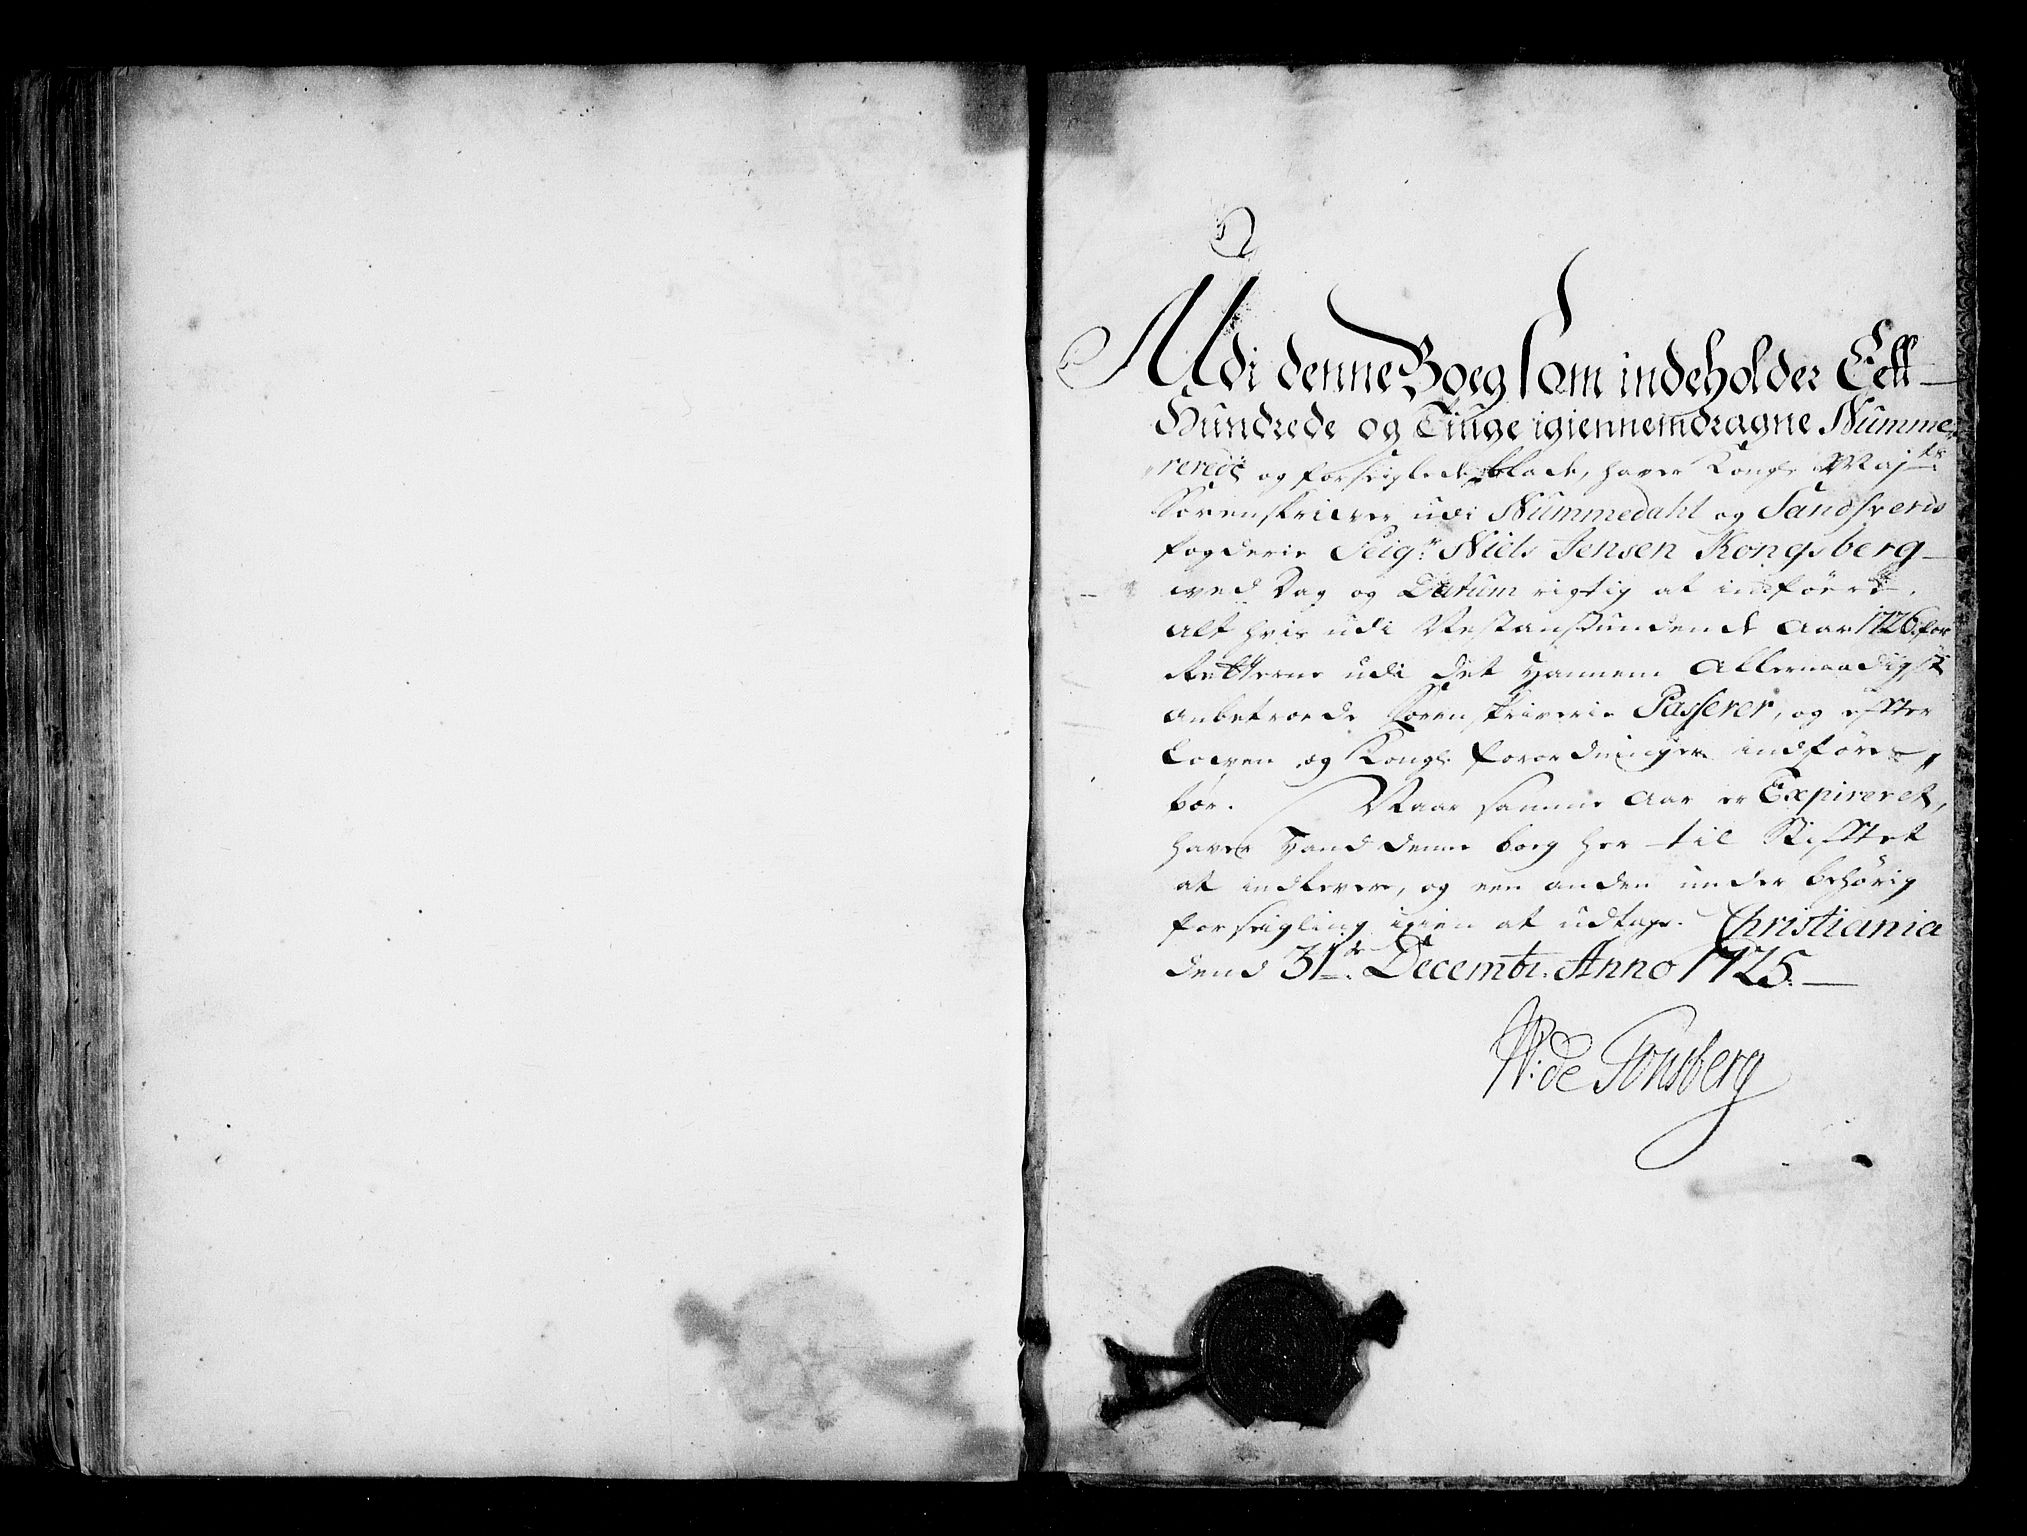 Udi denne Boeg som indeholder Eett
Hundrede og Tiuge igiennemdragne Numme-
rerede og forseiglede blade, haver Kongl: Majts
Sorenskriver udi Nummedahl og Sandsverds
fogderie Seigr Niels Jensen Kongsberg
ved Dag og Datum rigtig at indføere
alt hvis udi Nestanstundende Aar 1726 for
Retterne udi det hannem Allernaadigst
anbetroede Sorenskriverie Passerer, og efter
Loven og Kongl: forordninger indføres
bør. Naar samme Aar er Expireret,
haver hand denne boeg her til Stifftet
at indlevere, og een anden under behørig
forseigling igien at udtage. Christiania
dend 31te Decembr. Anno 1725.
W: de Tonsberg